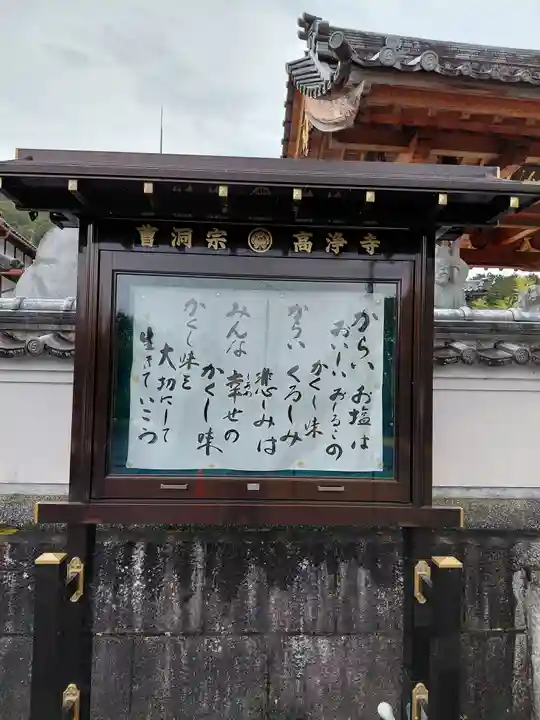 曹洞宗 高浄寺
からいお塩は
おいしいおしるこの
かくし味
からいくるしみ
悲しみは
みんな幸せの
しあわせ
かくし味
かくし味を
大切にして
生きていこう